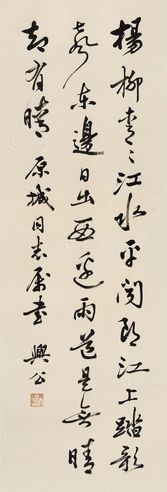 楊柳青〻江水平聞郎江上踏歌
聲東邊日出西邊雨道是無晴
却有晴 原城同志屬書 興公